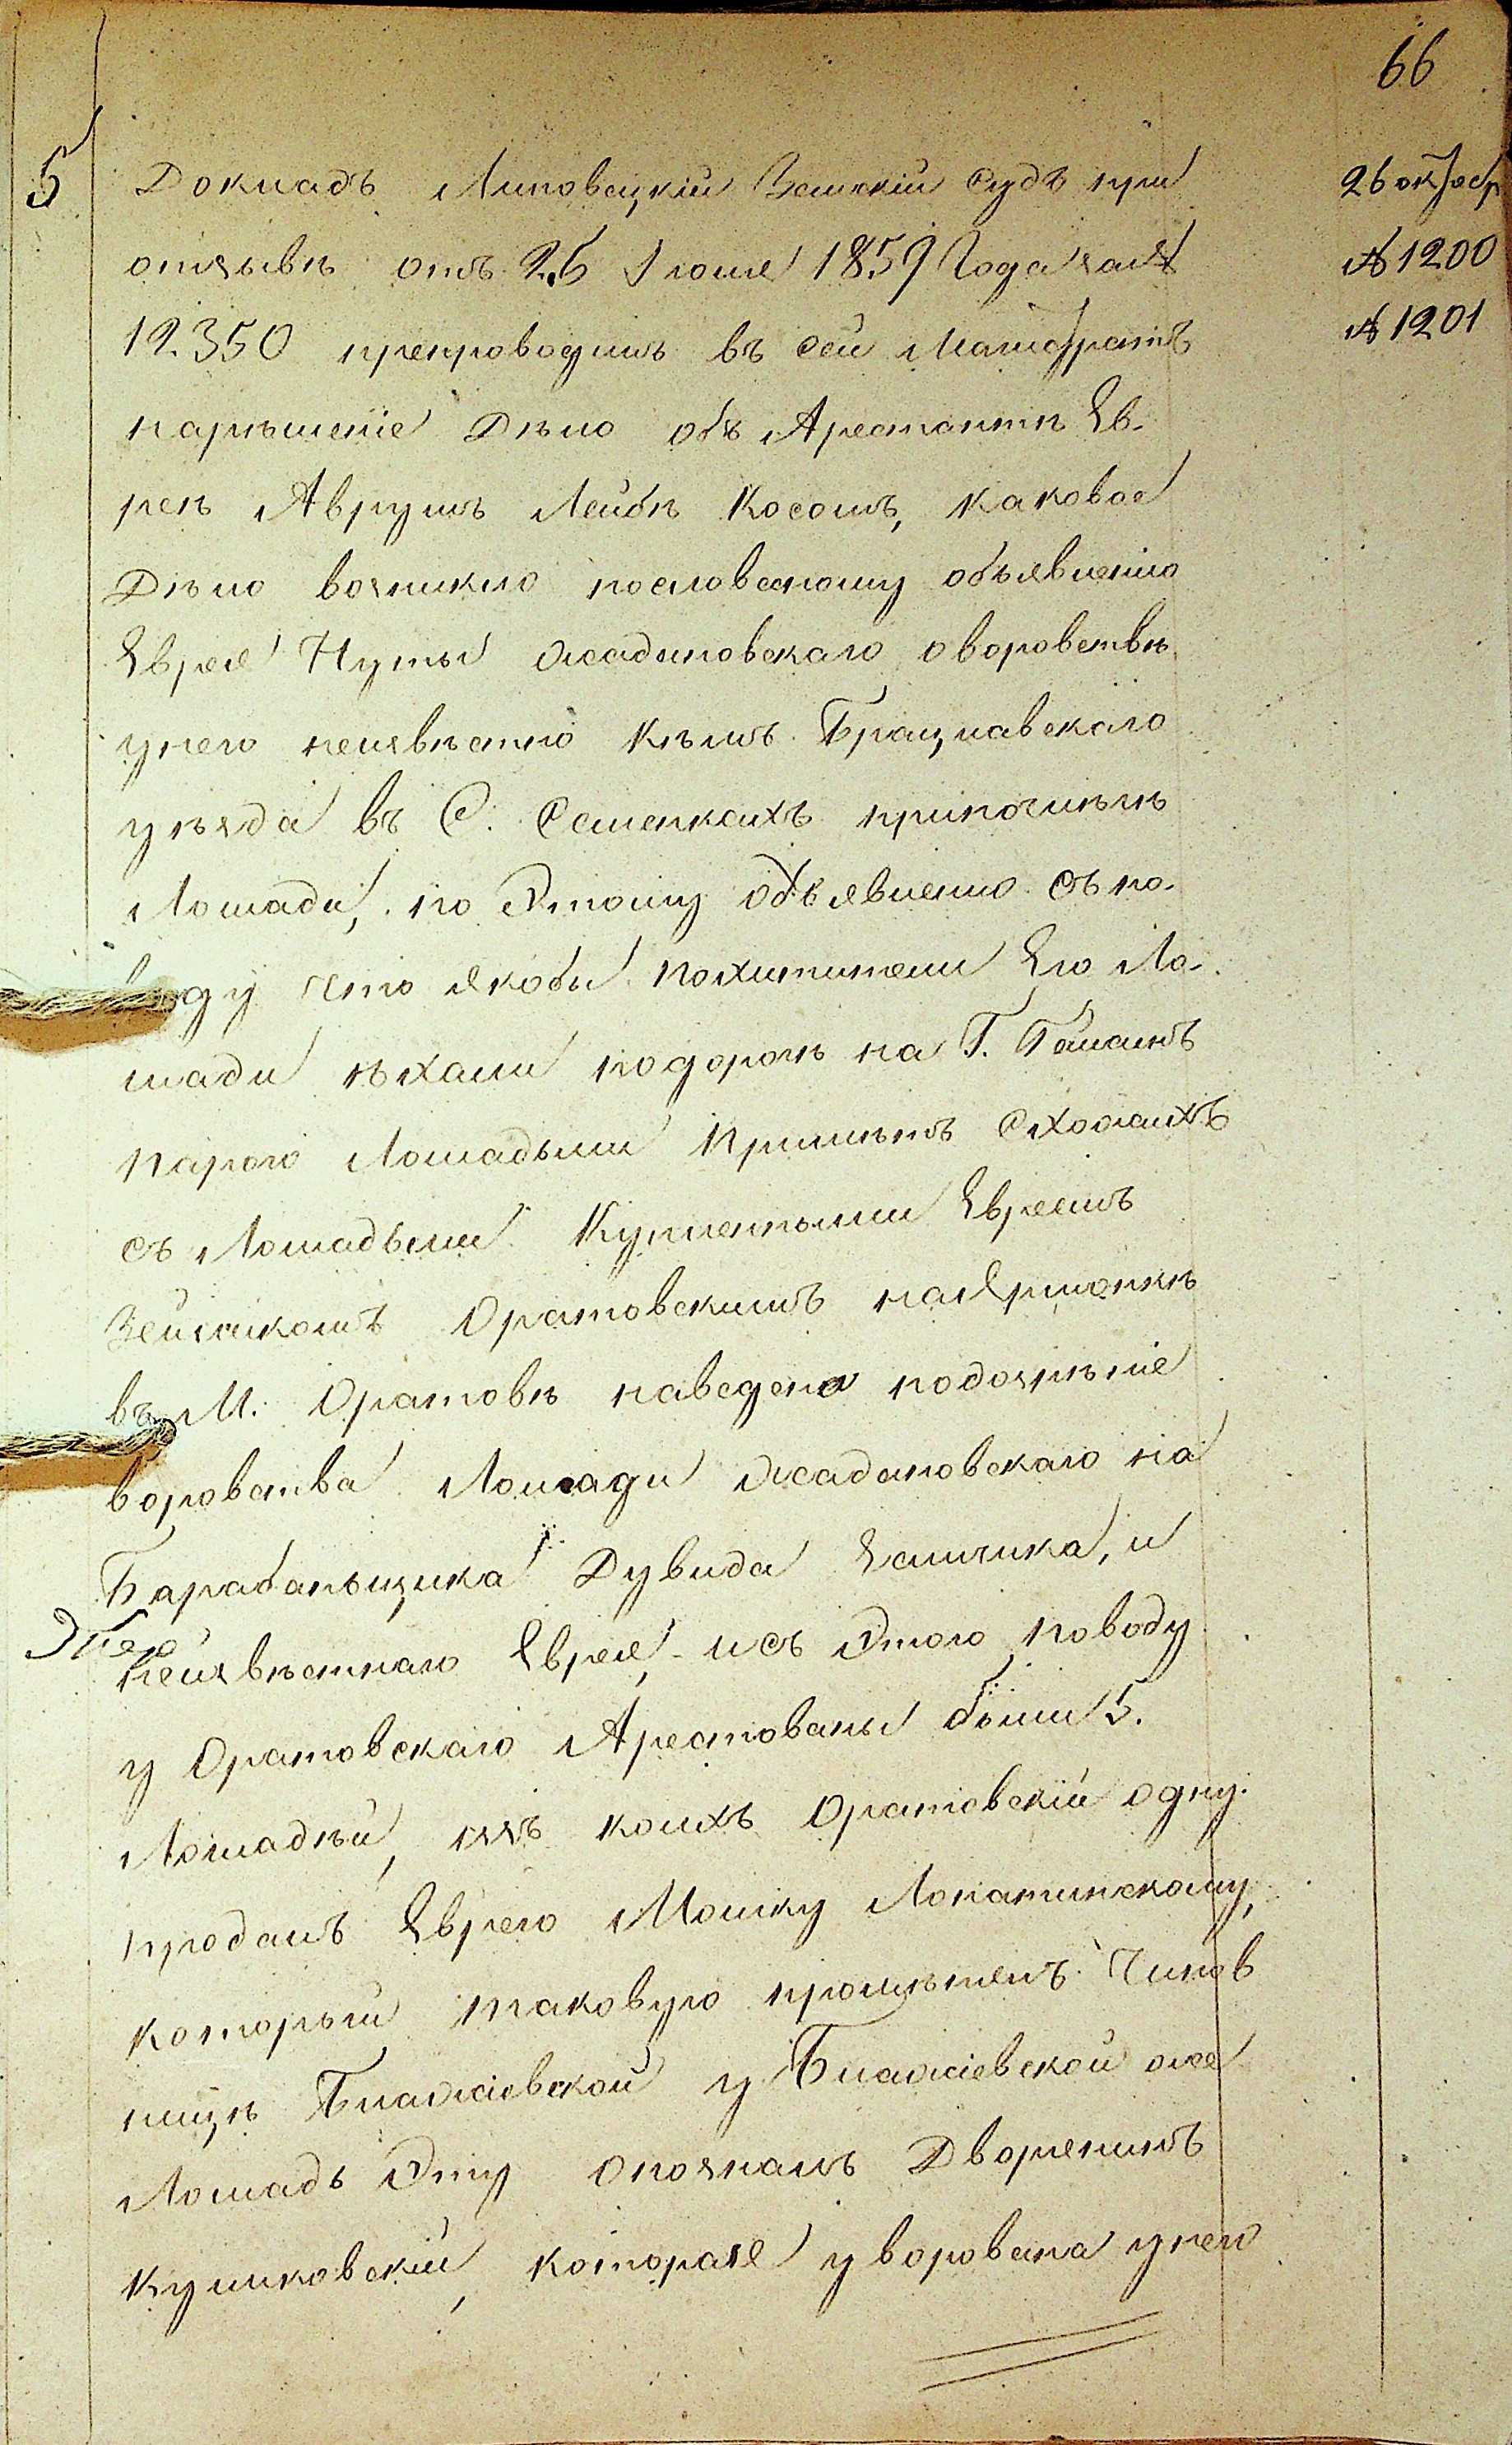 66
5
Докладъ Липовецкій Земскій Судъ при
отзывѣ отъ 26 Іюля 1859 Года за №
12.350 препроводилъ въ сей Магистратъ
нарѣшеніе Дѣло объ Арестантѣ Ев-
реѣ Аврумъ Лейбѣ Косомъ, каковое
Дѣло возникло пословесному объявленію
Еврея Нуты Жадановскаго о воровствѣ
унего неизвѣстно Кѣмъ Брацлавскаго
уѣзда въ С. Семенкахъ приночлѣгѣ
Лошади, по Этому объявленію съ по-
воду что якобы похитители Его Ло-
шади ѣхали подорогѣ на Г. Гайсинъ
парою Лошадьми примѣтъ схожихъ
съ Лошадьми Купленными Евреемъ
Зейликомъ Оратовскимъ на Ярмонкѣ
въ М. Оратовѣ наведено подозрѣніе
воровства Лошади Жадановскаго на
Барабаньщика Дувида и
неизвѣстнаго Еврея, - и съ Этого поводу
у Оратовскаго Арестованы были 5.
Лошадѣй, изъ коихъ Оратовскій одну
продалъ Еврею Мошку Лопатинскому,
который таковую промѣнялъ Чинов
ницѣ Блажіевской у Блажіевской же
Лошадь Эту опозналъ Дворянинъ
Куликовскій, которая уворована унего
26 октябр
№ 1200
№ 1201